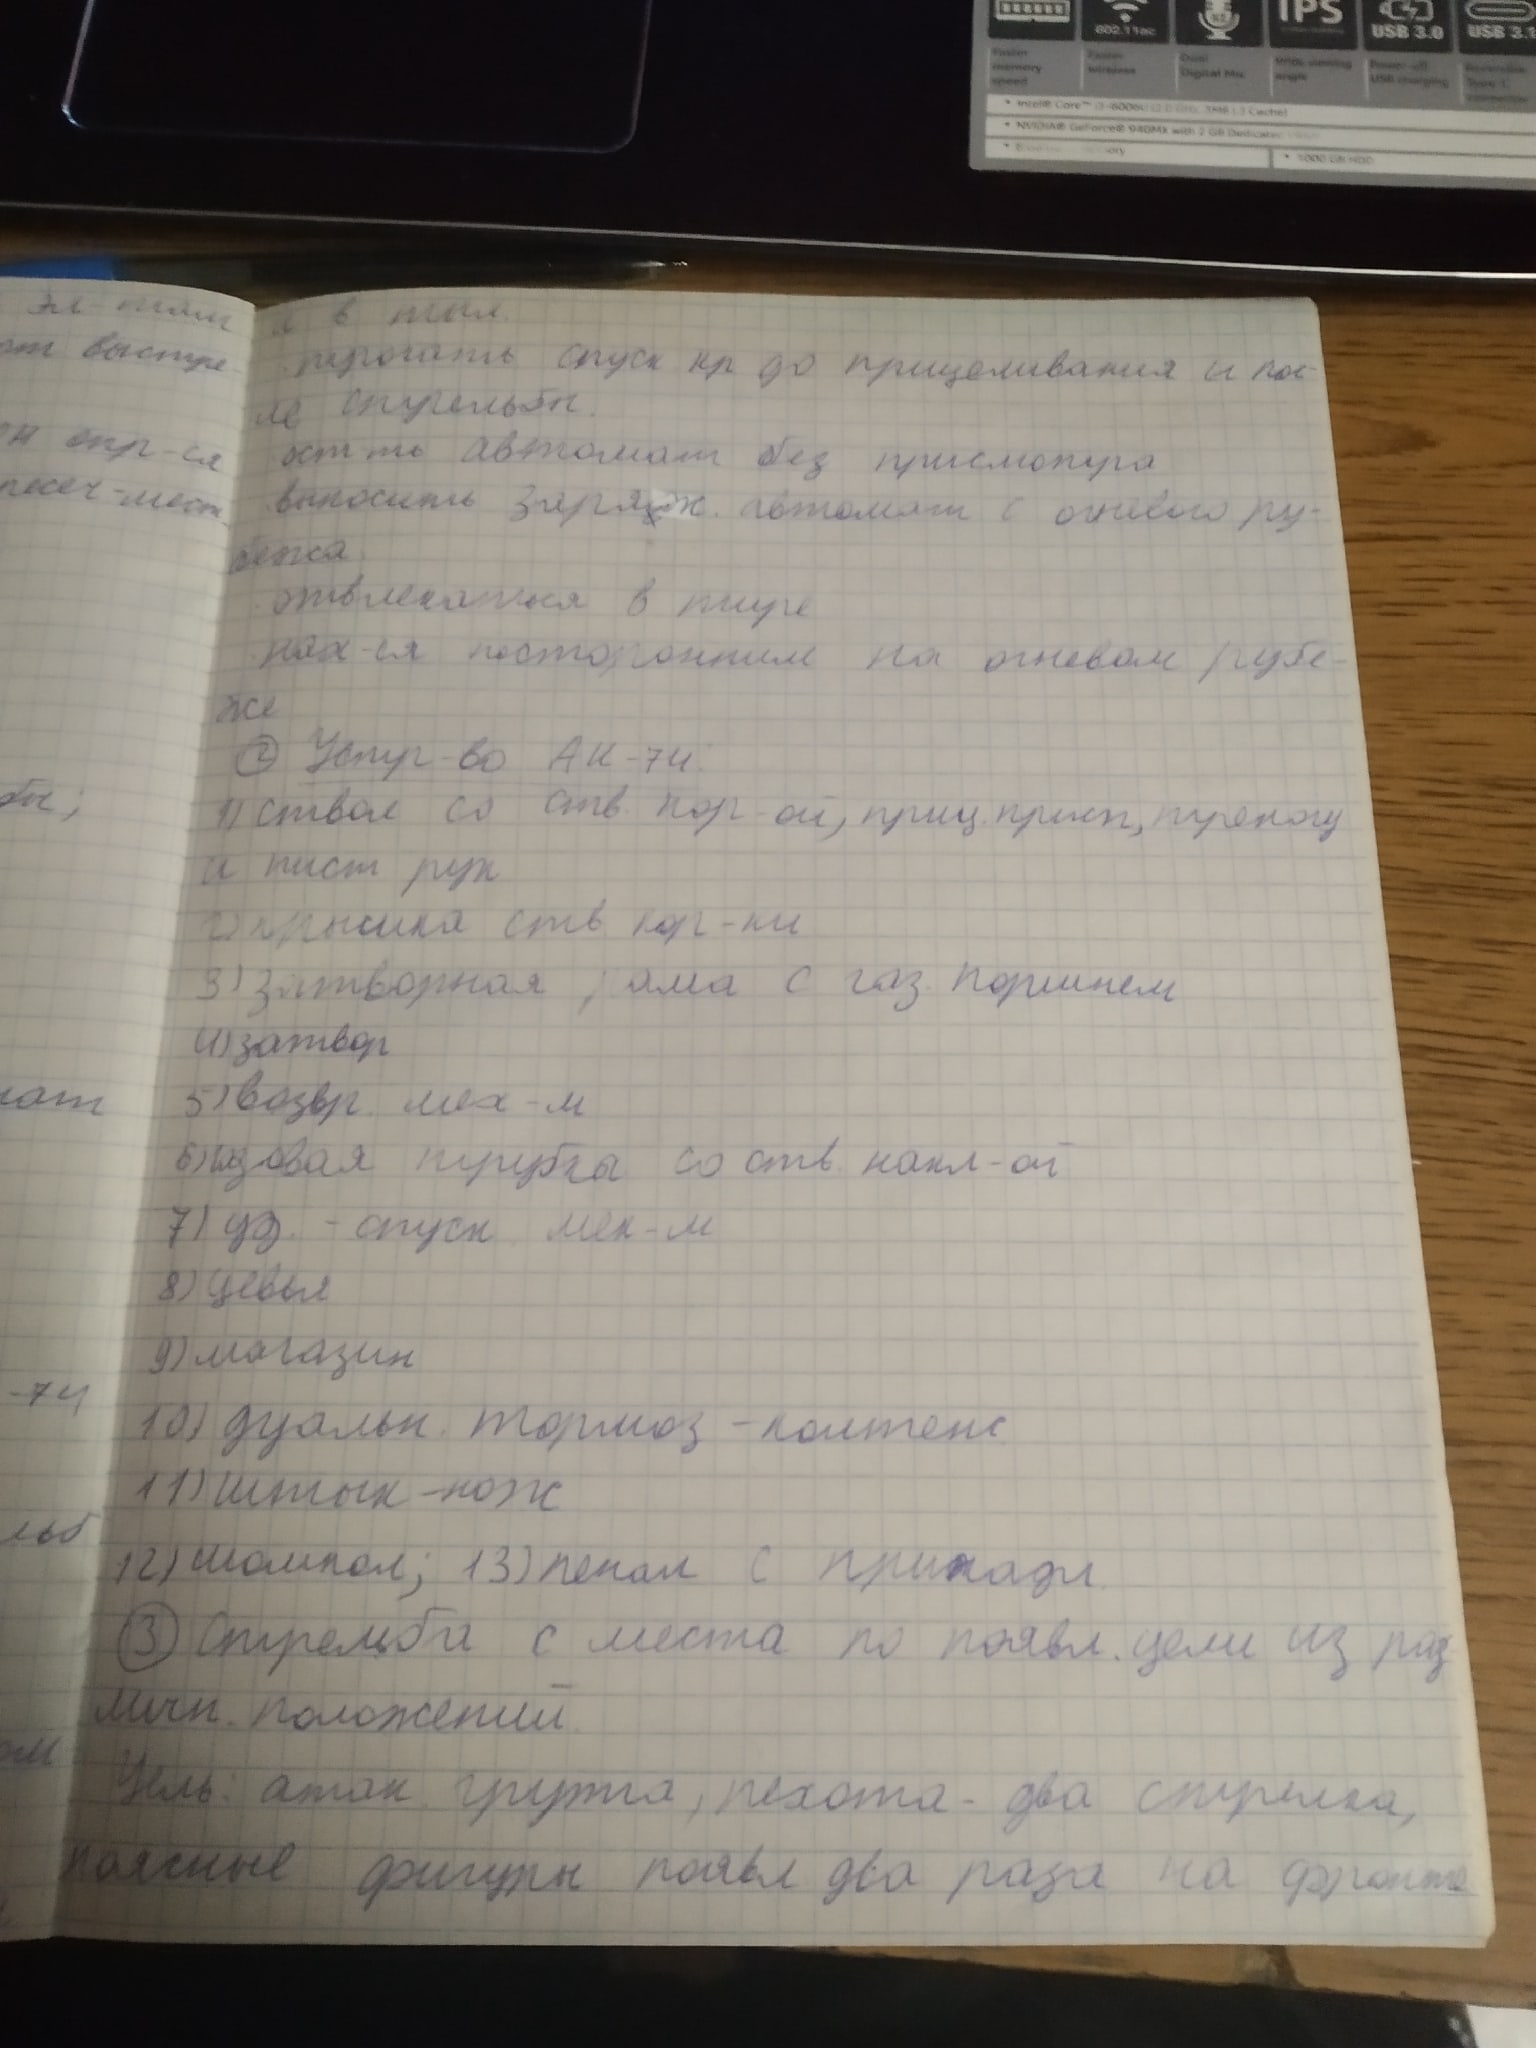 802.11ac
IPS
USB 3.0
USB 3.1
Faster memory speed
Faster wireless
Dual Digital Mic
Wide viewing angle
Power-off USB charging
• NVIDIA® GeForce® 940MX with 2 GB Dedicated
• 1000 GB HDD
эл-там
от выстре-
опр-ся
-мест.
бы;
-74
льб
в тыл.
трогать спуск кр до прицеливания и пос-
ле стрельбы.
ост-ть автомат без присмотра
выносить заряж. автомат с огневого ру-
бежа
отвлекаться в тире
нах-ся посторонним на огневом рубе-
же
② Устр-во АК-74:
1) ствол со ств. кор-ой, приц. присп,
и пист рук
2) крышка ств. кор-ки
3) Затворная рама с газ. поршнем
4) затвор
5) возвр. мех-м
6) газовая трубка со ств. накл-ой
7) уд. - спуск мех-м
8) цевье
9) магазин
10) дуальн. тормоз-компенс
11) штык-нож
12) шомпол; 13) пенал с принадл.
③ Стрельба с места по появл. цели из раз-
личн. положений.
Цель: атак. группа, пехота - два стрелка,
поясные фигуры появл два раза на фронте